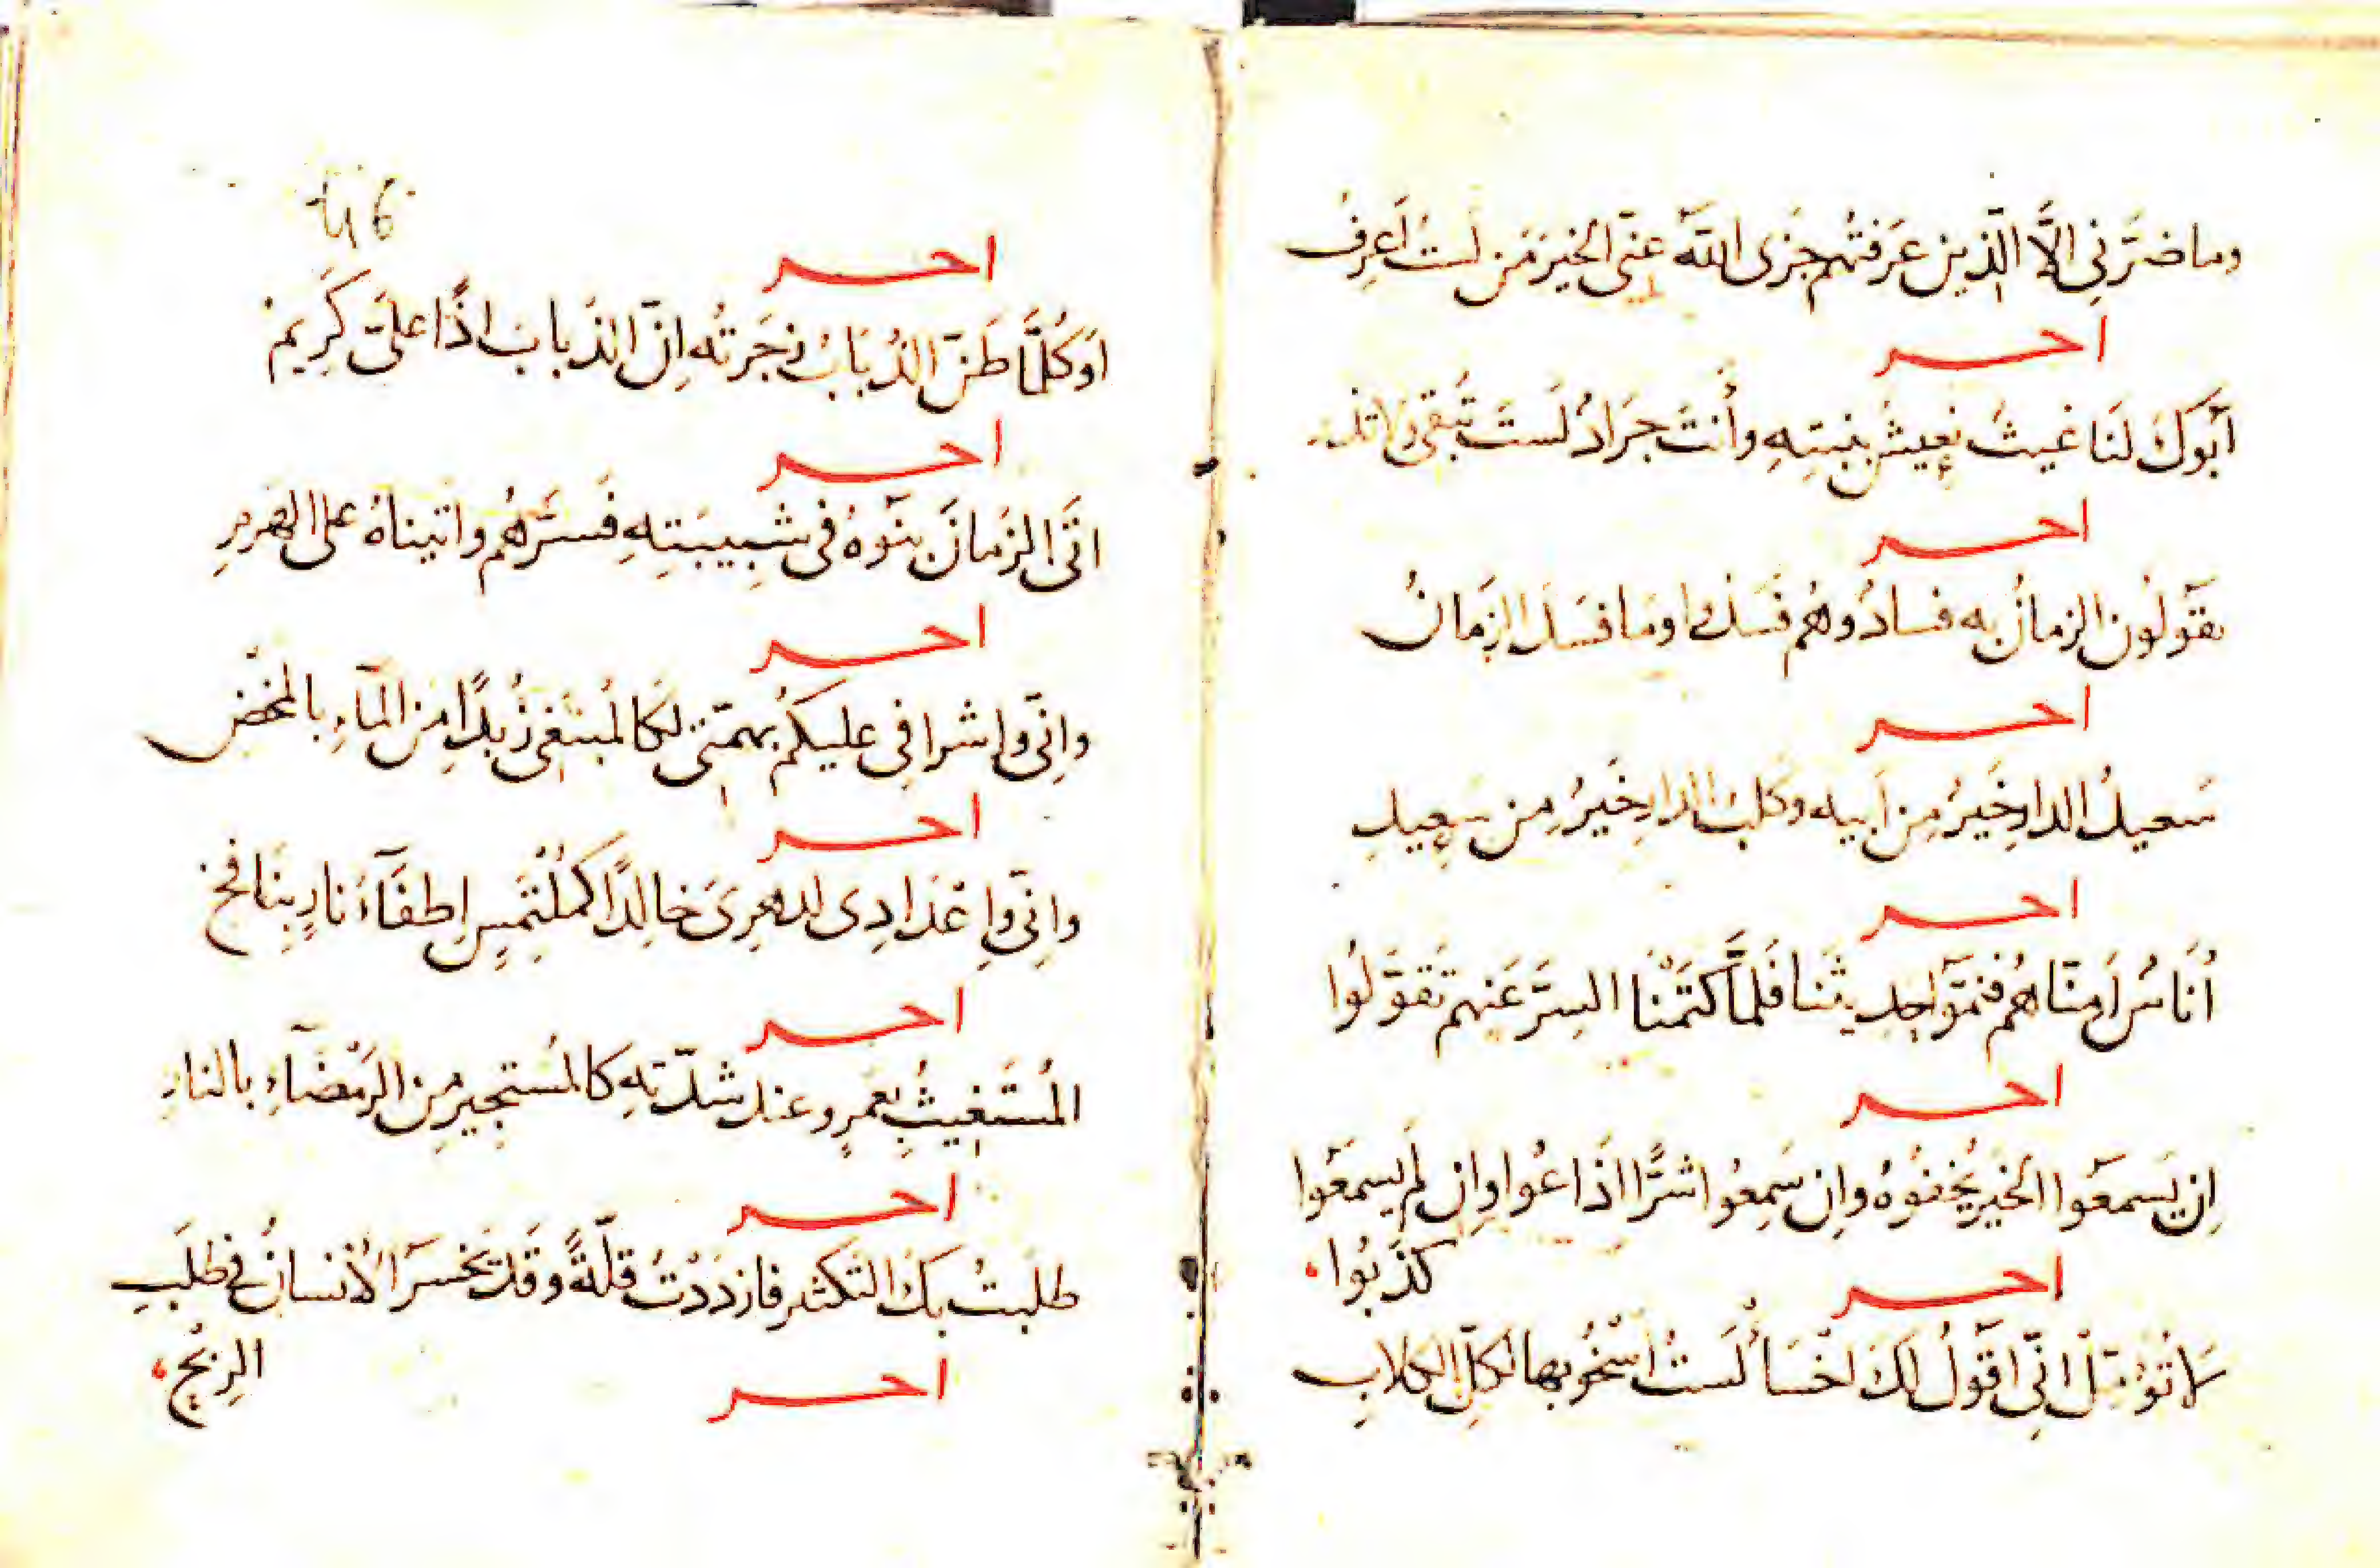 وما ضرَّنِى الاَّ الّذِين عَرَفتُهم جَزَى اللّه عنّى الخيرَ مَن لستُ اَعرِفُ
احر
اَبَوكَ لَنَا غيثٌ نعِيشُ بنبتِهِ وأَنتَ جَرَادٌ لَستَ تُبقِى ولا تذر
احر
يقَولُون الزمانُ به فسادٌ وهُم فَسَدُوا ومَا فسَدَ الزمَانُ
احر
سَعيدُ الدارِ خَيرٌ مِن اَبيه وكلبُ الدارِ خَيرٌ مِن سَعِيدِ
احر
أُنَاسٌ اَمِنّاهُم فنمّوا بحدِيثنا فَلمَّا كتَمْنا السِرَّ عَنهم تَقوَّلُوا
احر
اِن يَسمَعَوا الخيرَ يُخفوُهُ واِن سَمِعُوا شرًّا اذَاعُوا واِن لَم يسمَعَوا
كذَبُوا
احر
لا تؤمّلَ انّى اقَولُ لكَ اخْسَأْ لَستُ اَسْخُو بها لكلِّ الكلابِ
46
احر
اَوَكُلَّمَا طَنّ الذُبَابُ زجَرتُه اِنّ الذبابَ اذًا علىّ كَرِيم
احر
اتَى الزمانَ بنَوهُ فى شبِيبَتِهِ فَسَرَّهُم واتيناهُ على الهرمِ
احر
واِنّى واِشرافِى عليكمُ بهمّتى لكالمُبتغِى زُبدًا مِن المآءِ بالمخضِ
احر
واِنّى واِعْدَادِى لدهرِىَ خالِدًا كمُلتَمِسٍ اِطفَآءَ نارٍ بِنَافخ
احر
المُستَغِيثُ بعَمرٍو عند شدّتهِ كالمُستَجِيرِ مِن الرَمْضَآءِ بالنارِ
احر
طلَبتُ بكَ التَكثر فازدَدْتُ قلّةً وقَد يَخسَرَ الانسانُ فى طَلَبِ
الرِبْحِ
احر